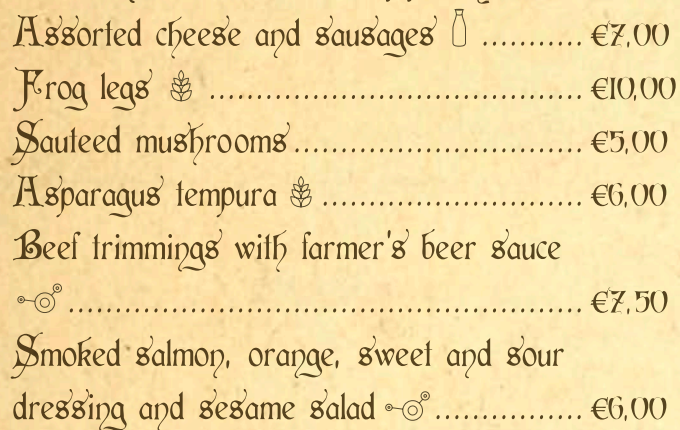 Assorted cheese and sausages ................ €7,00
Frog legs ............................................... €10,00
Sauteed mushrooms ................................ €5,00
Asparagus tempura ............................. €6,00
Beef trimmings with farmer's beer sauce
......................................................... €7,50
Smoked salmon, orange, sweet and sour
dressing and sesame salad ................ €6,00